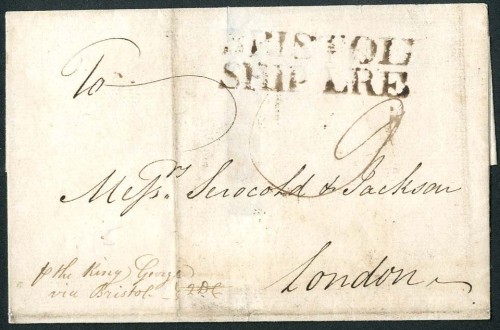 BRISTOL
SHIP LRE
To
9
Messrs. Serocold & Jackson
London
p the King George
via Bristol